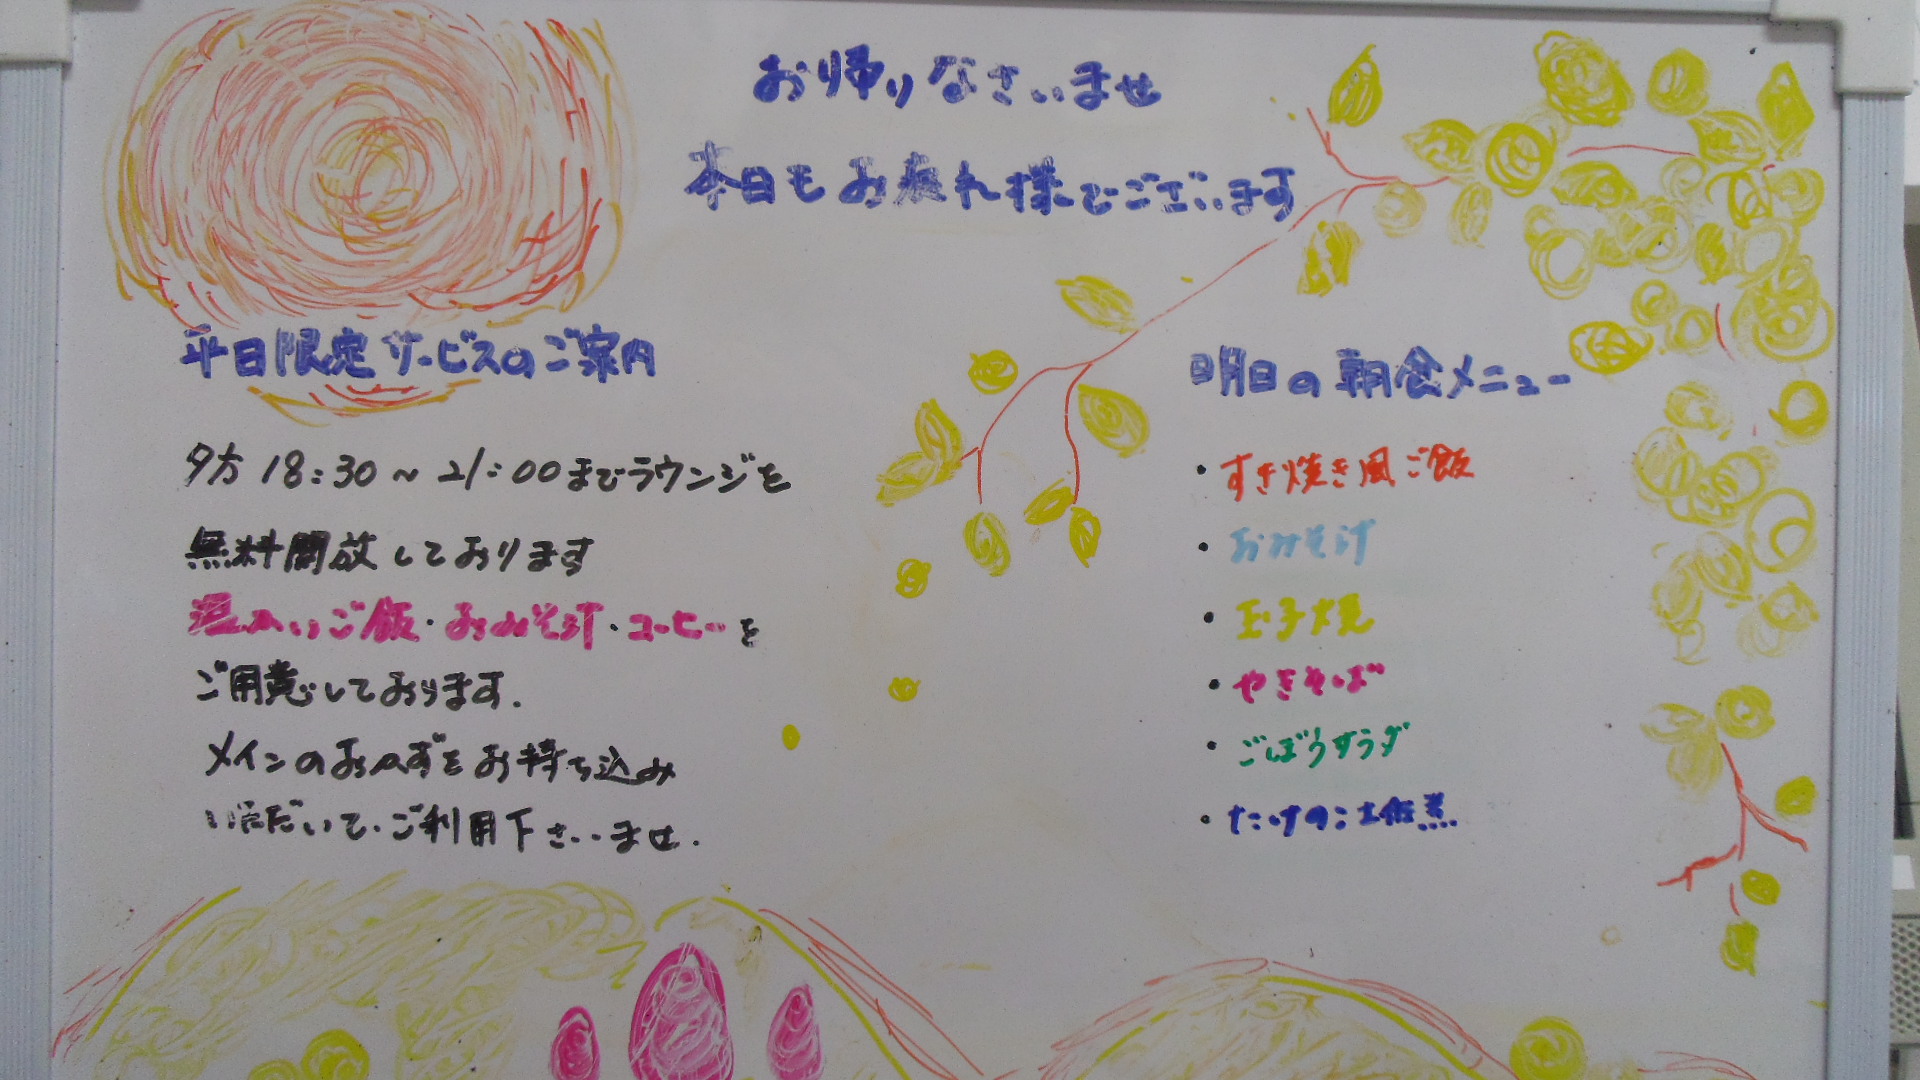 お帰りなさいませ
本日もお疲れ様でございます
平日限定サービスのご案内
夕方18:30～21:00までラウンジを
無料開放しております
温かいご飯・おみそ汁・コーヒーを
ご用意しております.
メインのおかずをお持ち込み
いただいて、ご利用下さいませ.
明日の朝食メニュー
・すき焼き風ご飯
・おみそ汁
・玉子焼
・やきそば
・ごぼうサラダ
・たけのこ土佐煮